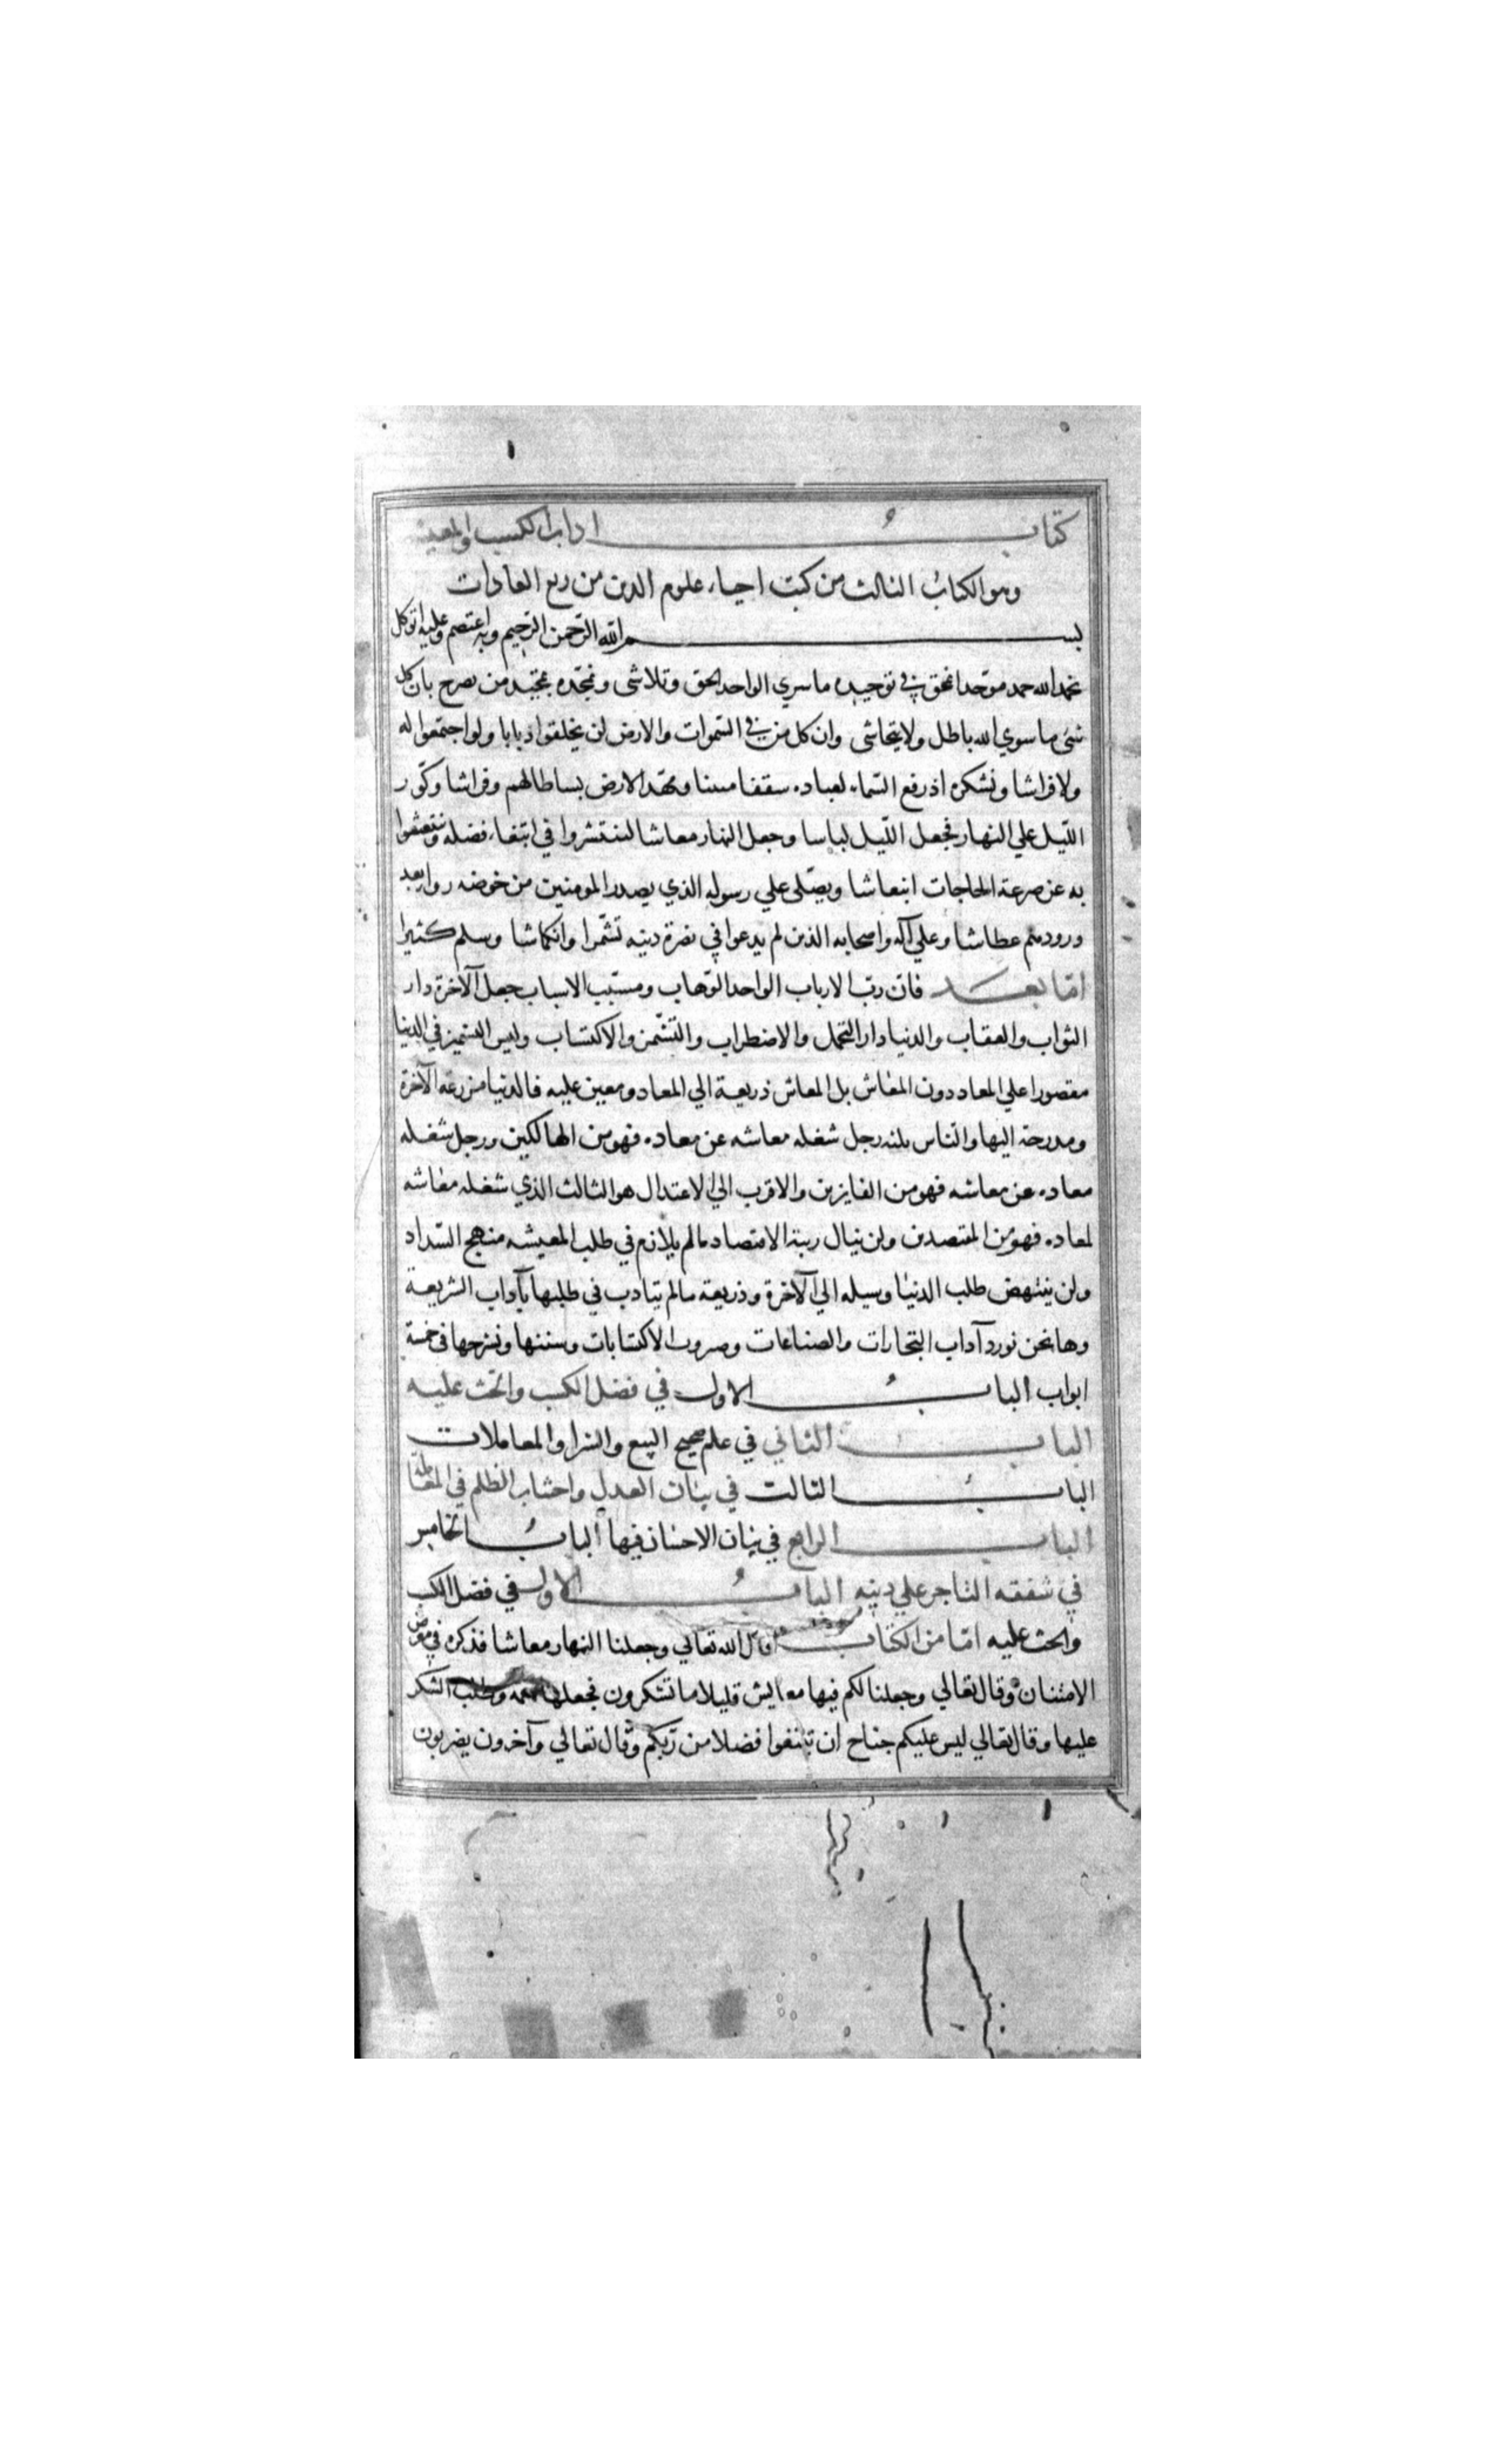 كتاب اداب الكسب والمعيشة
وهو الكتاب الثالث من كتب احياء علوم الدين من ربع العادات
بسم الله الرحمن الرحيم وبه اعتصم وعليه اتوكل
نحمد الله حمد موحد انمحق في توحيده ما سوي الواحد الحق وتلاشى ونمجده تمجيد من يصرح بان كل
شئ ما سوي الله باطل ولا يتحاشى وان كل من في السموات والارض لن يخلقوا ذبابا ولو اجتمعوا له
ولا فراشا ونشكره اذ رفع السماء لعباده سقفا مبنيا ومهد الارض بساطا لهم وفراشا وكور
الليل علي النهار فجعل الليل لباسا وجعل النهار معاشا لينتشروا في ابتغاء فضله وينتعشوا
به عن صرعة الحاجات انتعاشا ويصلى علي رسوله الذي يصدر المومنين من حوضه رواء بعد
ورودهم عطاشا وعلي آله واصحابه الذين لم يدعوا في نصرة دينه تشمرا وانكماشا وسلم كثيرا
اما بعد فان رب الارباب الواحد الوهاب ومسبب الاسباب جعل الآخرة دار
الثواب والعقاب والدنيا دار التحمل والاضطراب والتشمر والاكتساب وليس التشمر في الدنيا
مقصورا علي المعاد دون المعاش بل المعاش ذريعة الي المعاد ومعين عليه فالدنيا مزرعة الآخرة
ومدرجة اليها والناس ثلثه رجل شغله معاشه عن معاده فهو من الهالكين ورجل شغله
معاده عن معاشه فهو من الفايزين والاقرب الي الاعتدال هو الثالث الذي شغله معاشه
لمعاده فهو من المقتصدين ولن ينال رتبة الاقتصاد ما لم يلازم في طلب المعيشه منهج السداد
ولن ينتهض طلب الدنيا وسيله الي الآخرة وذريعة ما لم يتادب في طلبها بآداب الشريعة
وها نحن نورد آداب التجارات والصناعات وضروب الاكتسابات وسننها ونشرحها في خمسة
ابواب الباب الاول في فضل الكسب والحث عليه
الباب الثاني في علم صحيح البيع والشرا والمعاملات
الباب الثالث في بيان العدل واجتناب الظلم في المعاملة
الباب الرابع في بيان الاحسان فيها الباب الخامس
في شفقه التاجر علي دينه الباب الاول في فضل الكسب
والحث عليه اما من الكتاب قال الله تعالي وجعلنا النهار معاشا فذكره في معرض
الامتنان وقال تعالي وجعلنا لكم فيها معايش قليلا ما تشكرون فجعلها نعمة وطلب الشكر
عليها وقال تعالي ليس عليكم جناح ان تبتغوا فضلا من ربكم وقال تعالي وآخرون يضربون